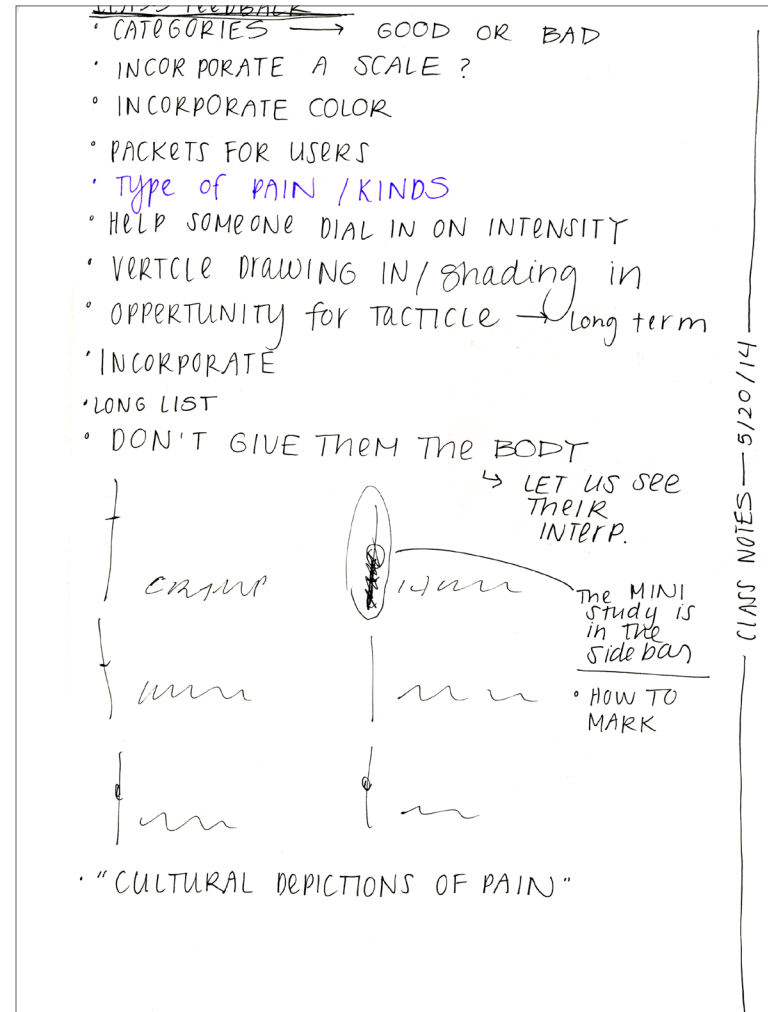 CLASS FEEDBACK
• CATEGORIES → GOOD OR BAD
• INCORPORATE A SCALE?
• INCORPORATE COLOR
• PACKETS FOR USERS
• TYPE OF PAIN / KINDS
• HELP SOMEONE DIAL IN ON INTENSITY
• VERTCLE DRAWING IN / shading in
• OPPERTUNITY for TACTICLE → Long term
• INCORPORATE
• LONG LIST
• DON'T GIVE THEM THE BODY
↳ LET US SEE
THEIR
INTERP.
CRAMP
The MINI
study is
in the
sidebar
• HOW TO
MARK
• "CULTURAL DEPICTIONS OF PAIN"
CLASS NOTES — 5/20/14